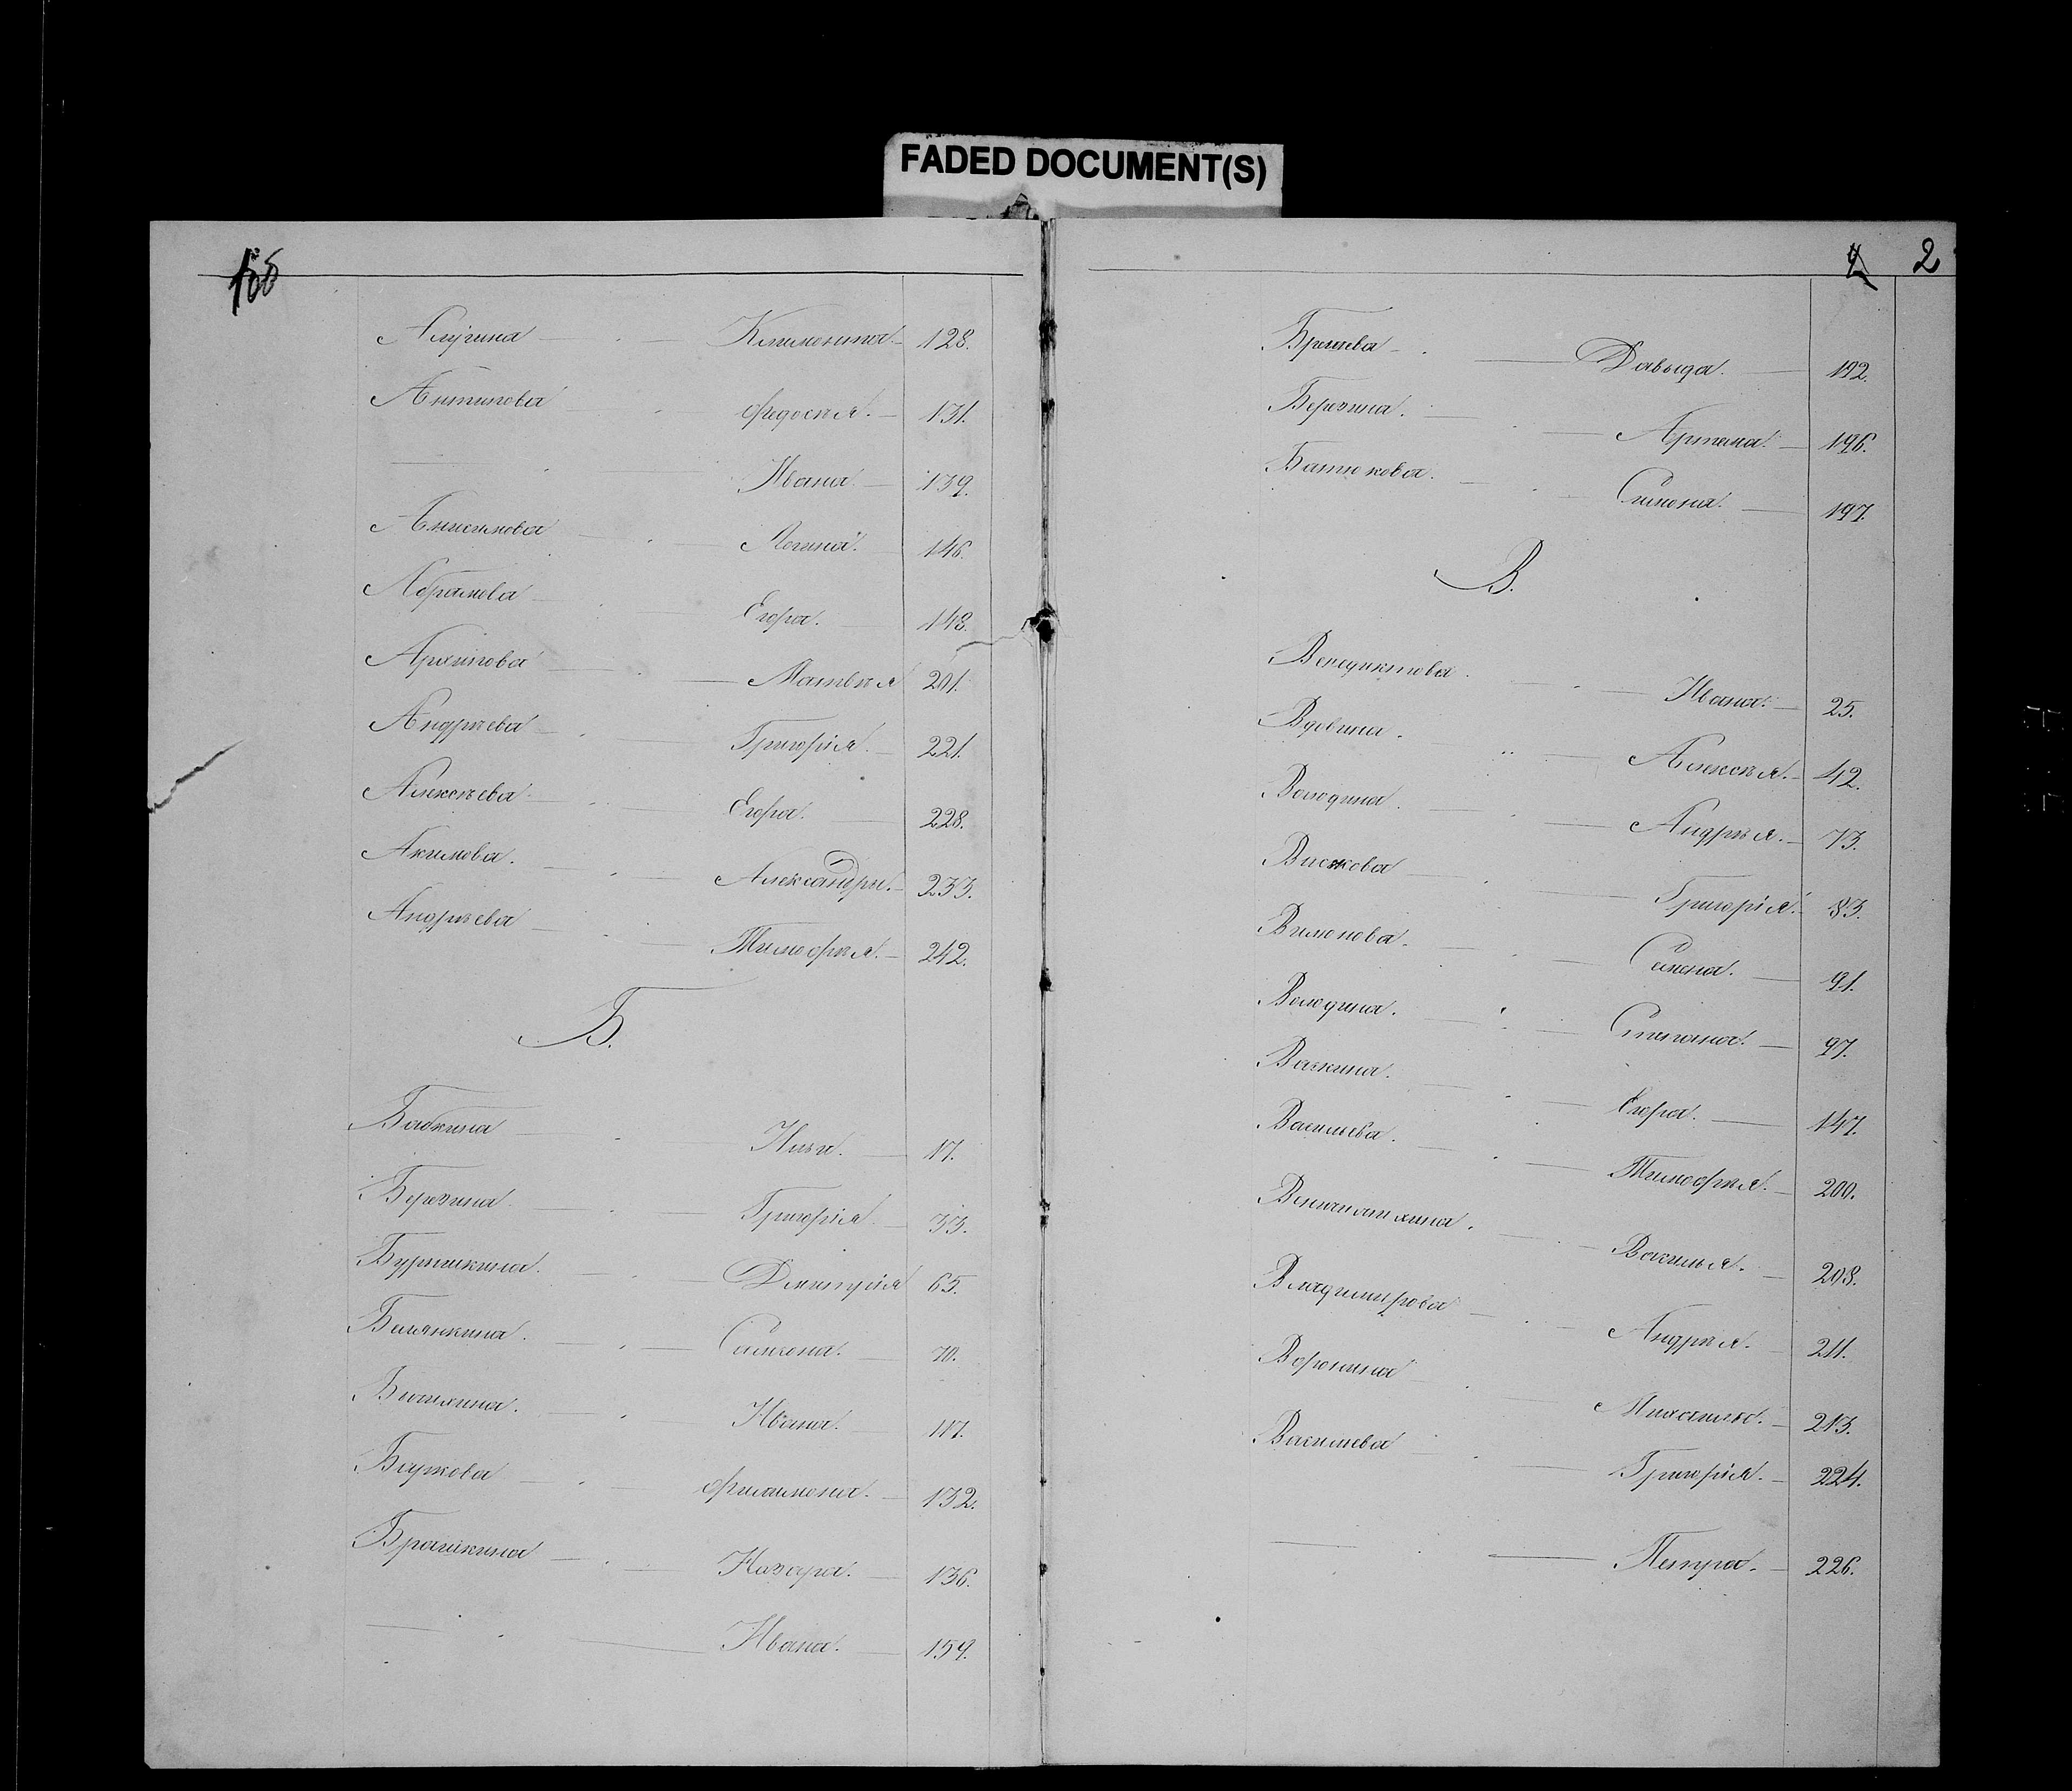 FADED DOCUMENT(S)
Климонта 128.
Антипова Федосѣя. 131.
Ивана 139.
Анисимова Логина. 146.
Абрамова Егора. 148.
Архипова Матвѣя 201.
Андрѣева Григорія. 221.
Алексѣева Егора. 228.
Акимова. Александры. 233.
Андрѣева Тимофѣя. 242.
Б.
Бабкина Ильи. 17.
Березина. Григорія. 33.
Бурмакина. Дмитрія 65.
Семена. 70.
Ивана. 117.
Баркова Филимона. 132.
Назара. 136.
Ивана. 159.
2
Давыда. 192.
Березина. Артема. 196.
Батюкова. Симона. 197.
В.
Венедиктова. Ивана. 25.
Вдовина. Алексѣя. 42.
Володина. Андрѣя. 73.
Григорія. 83.
Семена. 91.
Володина. Степана. 97.
Васкина. Егора. 147.
Васильева. Тимофѣя. 200.
Василья. 208.
Владимирова Андрѣя. 211.
Воронина Михаила. 213.
Васильева Григорія. 224.
Петра. 226.